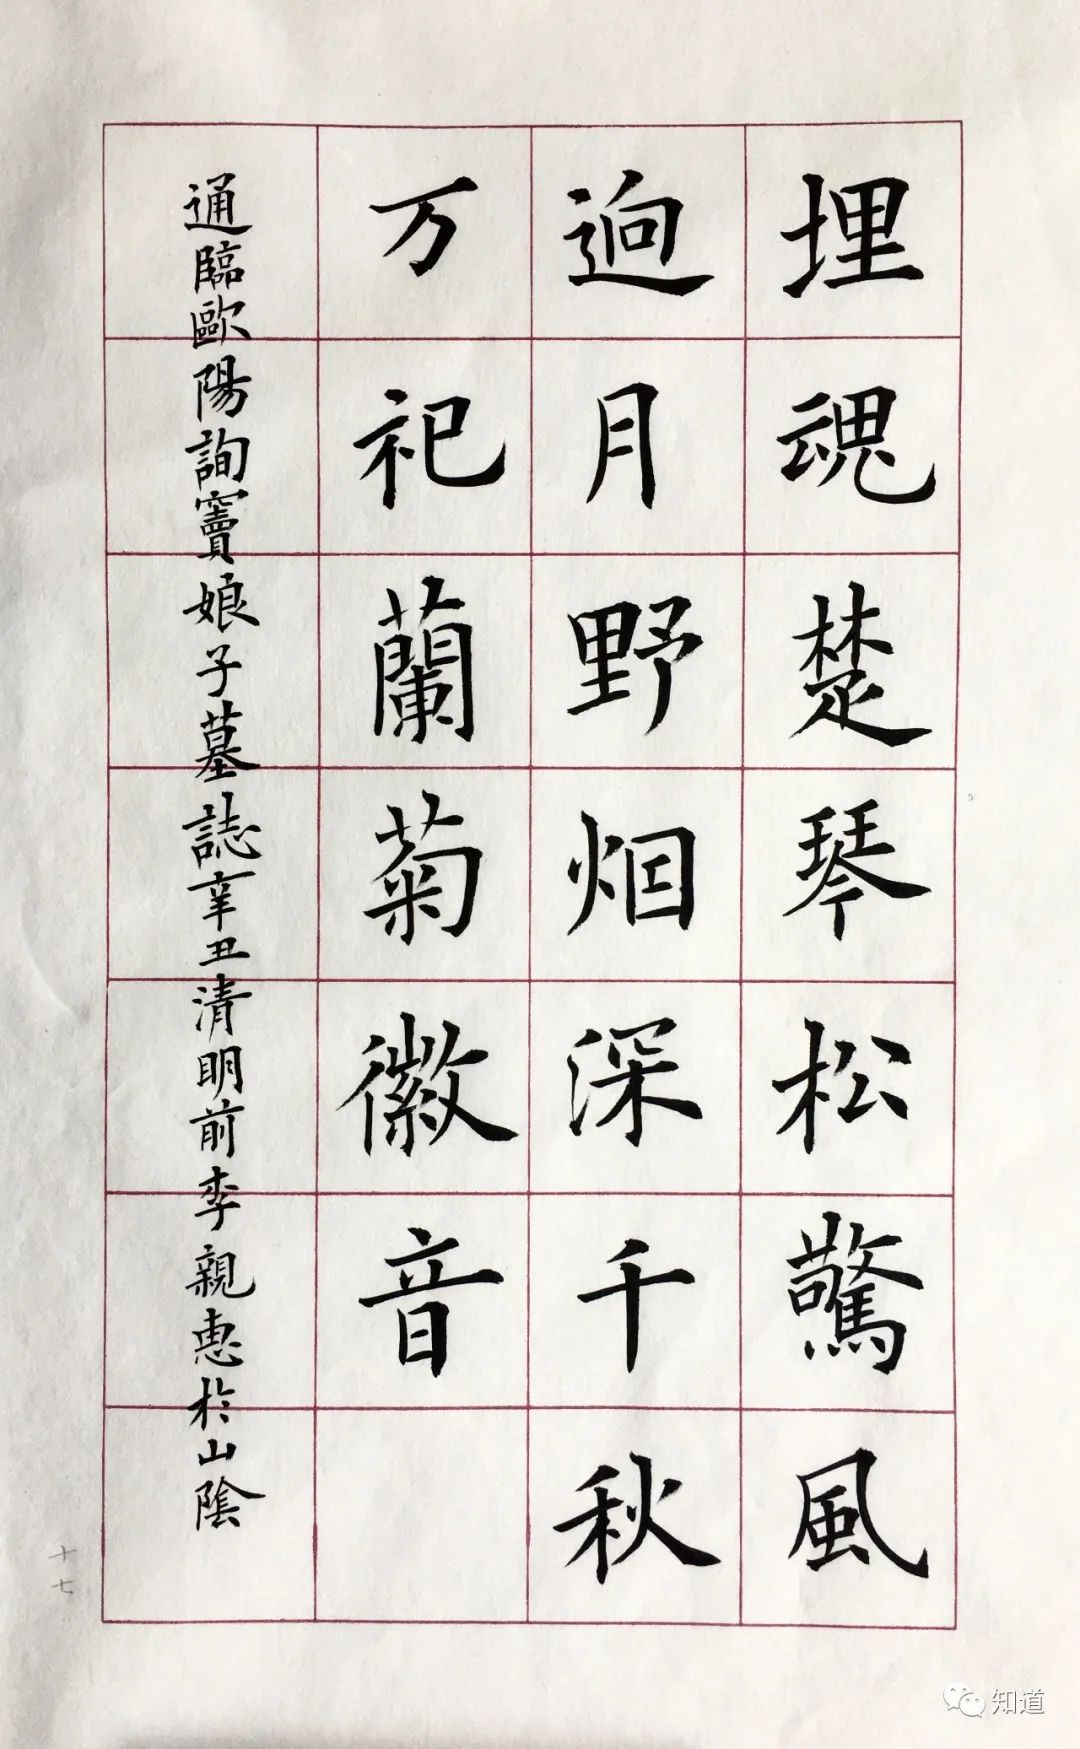 埋魂楚琴松驚風
逈月野烟深千秋
万祀蘭菊徽音
通臨歐陽詢竇娘子墓誌辛丑清明前李親惠於山陰
十七
知道